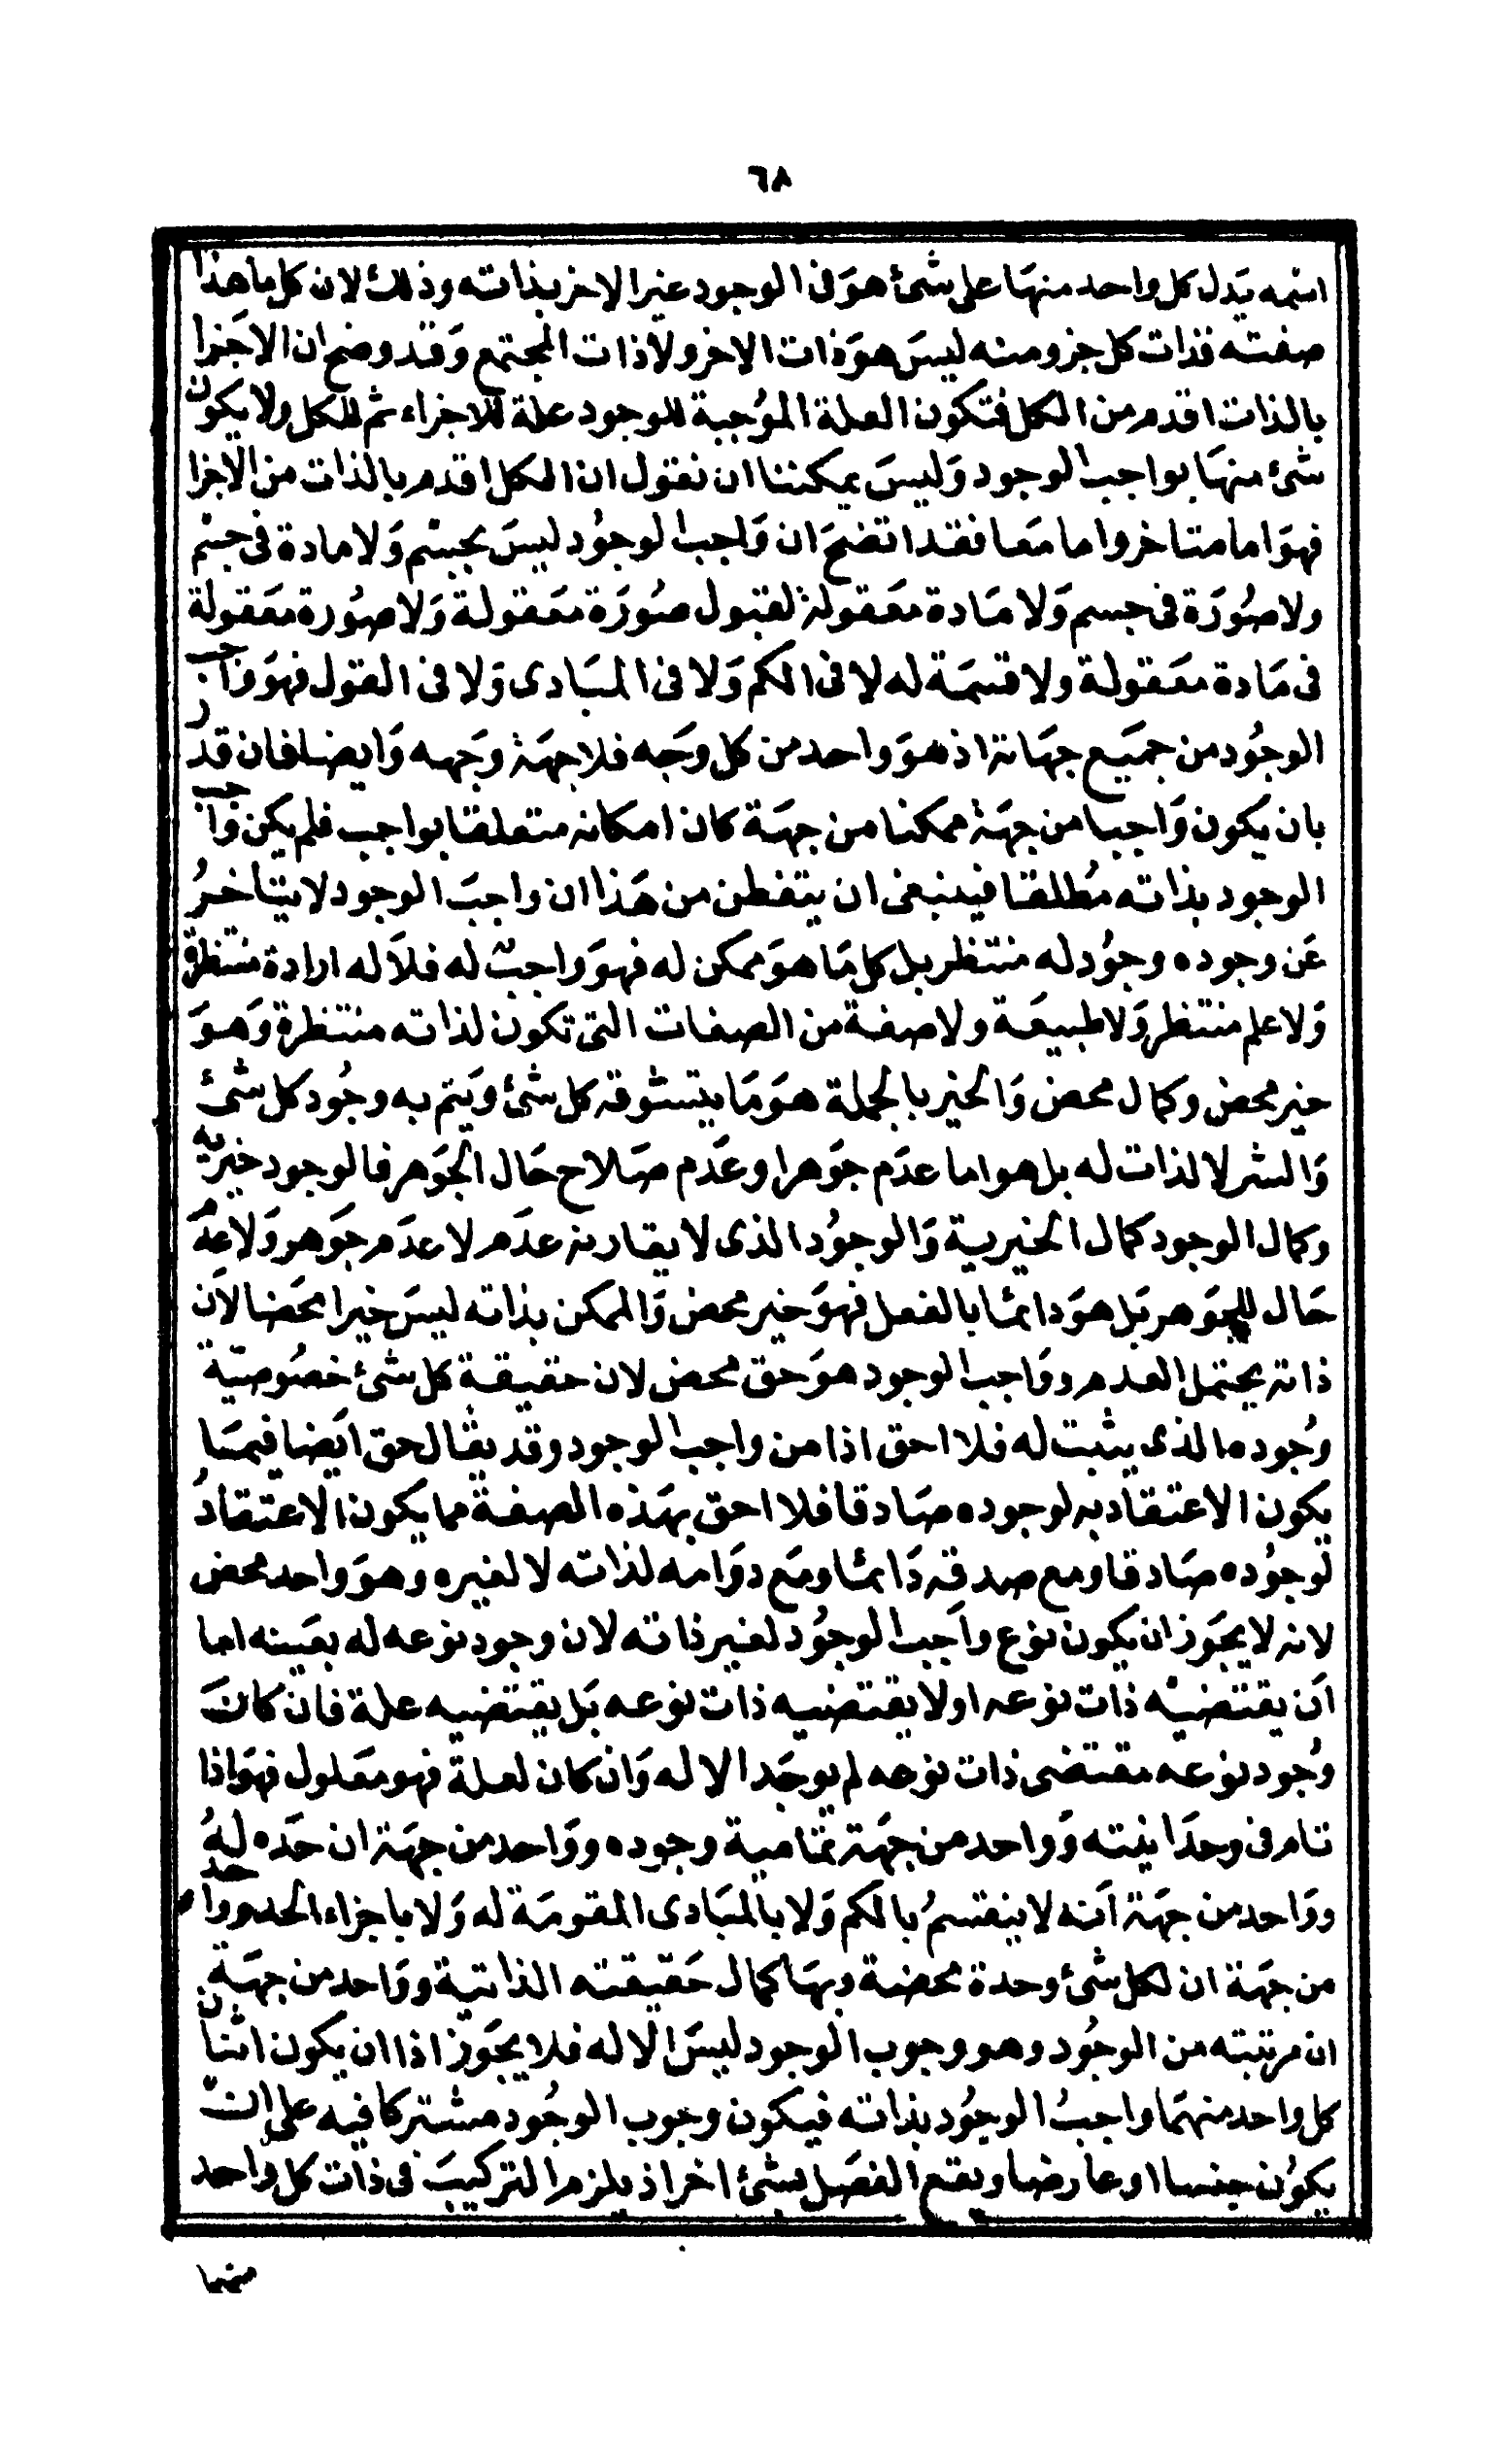 ٦٨
اسمه يَدل كل واحد منهَا على شئ هوَ فى الوجود غير الاخر بذاته وذلك لان كل ما هذا
صفته فذات كل جزو منه ليسَ هوَ ذات الاخر ولا ذات المجتمع وَقد وضح ان الاجَزا
بالذات اقدم من الكل فتكون العلة الموُجبة للوجود علة للاجزاء ثم للكل ولا يكون
شئ منهَا بواجب الوجود وَليسَ يمكننا ان نقول ان الكل اقدم بالذات من الاجزا
فهوَ اما متاخر واما مَعا فقد اتضحَ ان وَاجب الوجوُد ليسَ بجسْم وَلا مادة فى جسْم
ولا صوُرَة فى جسم وَلا مَادة معَقولة لقبول صوُرَة معَقولة وَلا صوُرة معَقولة
فى مَادة معَقولة ولا قسمَة له لا فى الكم وَلا فى المبَادى وَلا فى القول فهوَ وَاجب
الوجوُد من جميَع جهَاته اذ هوَ واحد من كل وجَه فلا جهَة وَجهه وَايضا فان قدر
بان يكون وَاجبا من جهَة ممكنا من جهَة كان امكانه متعلقا بواجب فلم يكن وَاجب
الوجود بذاته مُطلقا فينبغى ان يتفطن من هَذا ان واجبَ الوجود لا يتاخرُ
عَن وجوده وجوُد له منتظر بل كل مَا هوَ ممكن له فهوَ واجبٌ له فلاَ له ارادة منتظرة
وَلا علم منتظر وَلا طبيعَة ولا صفة من الصفات التى تكون لذاته منتظرة وَهوَ
خير محض وكمال محض وَالخير بالجملة هوَ مَا يتشوقه كل شئ ويَتم به وجوُد كل شئ
وَالشر لا لذات له بل هو اما عدَم جوَهر او عَدم صَلاح حَال الجوَهر فالوجود خيرية
وكمال الوجود كمال الخيرية وَالوجوُد الذى لا يقارنه عدَم لا عدَم جوَهر وَلا عدَم
حَال للجوَهر بَل هوَ دائما بالفعل فهوَ خير محض وَالممكن بذاته ليسَ خيرا محَضا لاَن
ذاته يحتمل العدم ووَاجب الوجود هوَ حق محض لان حقيقة كل شئ خصُوصيّة
وجُوده الذى يثبت له فلا احق اذا من واجب الوجود وقد يقال حق ايَضا فيمَا
يكون الاعتقاد به لوجوده صَادقا فلا احق بهَذه الصفة مما يكون الاعتقادُ
لوجوُده صَادقا ومع صدقه دَائما ومَع دوَامه لذاته لا لغيره وهوَ واحد محض
لانه لا يجَوز ان يكون نوع واَجب الوجوُد لغير ذاته لان وجود نوعه له بعَينه اما
اَن يقتضيْه ذات نوعه او لا يقتضيه ذات نوعه بَل يقتضيه علة فان كانَ
وجُود نوعه مقتضى ذات نوعه لم يوجَد الا له وَان كان لعلة فهو معَلول فهوَ اذا
تام فى وحدَانيته وَواحد من جهَة تمَامية وجوده ووَاحد من جهَة ان حدَه لهُ
ووَاحد من جهَة اَنه لا ينقسمُ بالكم وَلا بالمبَادى المقومَة له وَلا باجزاء الحد وواحد
من جهَة ان لكل شئ وحدة محضة وبهَا كمال حَقيقته الذاتية ووَاحد من جهَة
ان مرتبته من الوجُود وهو وجوب الوجود ليسَ الا له فلا يجَوز اذا ان يكون اثنان
كل واحد منهمَا واجبُ الوجوُد بذاته فيكون وجوب الوجُود مشتركا فيه على ان
يكوُن جنسا او عارضا ويقع الفصَل بشئ اخر اذ يلزم التركيبَ فى ذات كل واحد
منهما